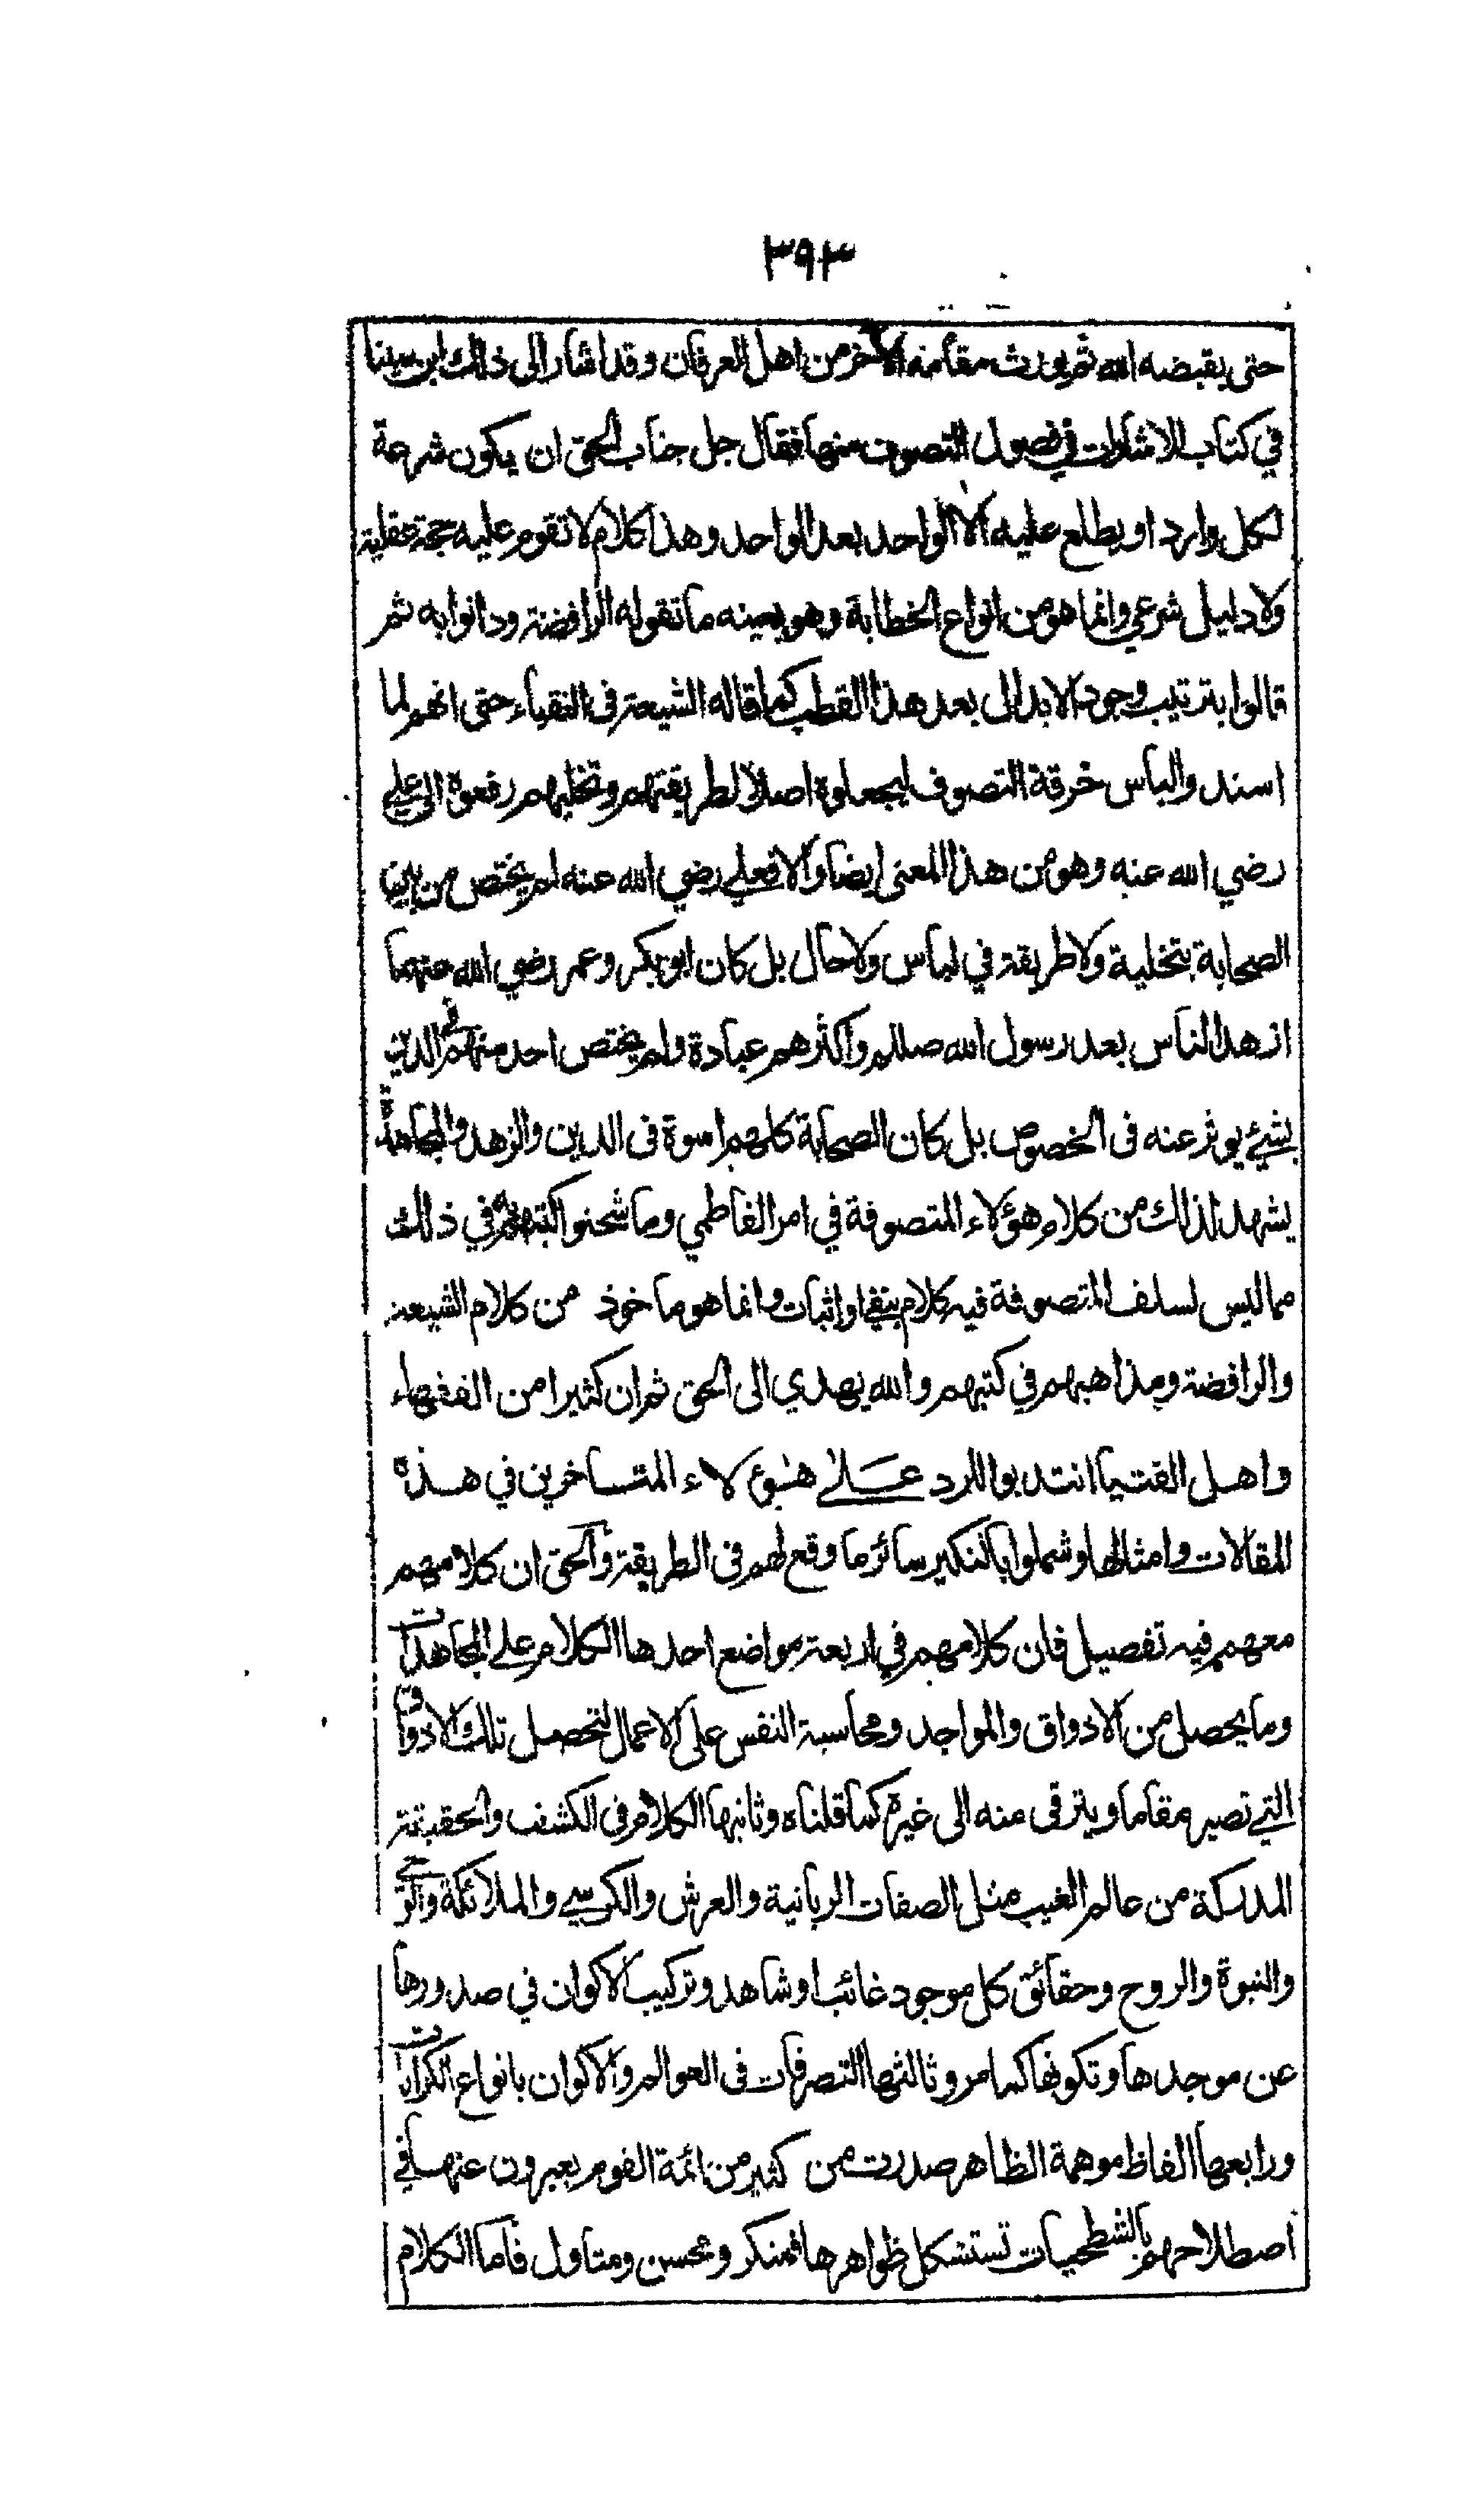 ٣٩٣
حتى يقبضه الله ثم يورث مقامه لآخر من اهل العرفان وقد اشار الى ذلك ابن سينا
في كتاب الاشارات في فصول التصوف منها فقال جل جناب الحق ان يكون شرعة
لكل وارد او يطلع عليه الا الواحد بعد الواحد وهذا كلام لا تقوم عليه حجة عقلية
ولا دليل شرعي وانما هو من انواع الخطابة وهو بعينه ما تقوله الرافضة ودانوا به ثم
قالوا بترتيب وجود الابدال بعد هذا القطب كما قاله الشيعة في النقباء حتى انهم لما
اسندوا لباس خرقة التصوف ليجعلوه اصلا لطريقتهم وتخليهم رفعوه الى علي
رضي الله عنه وهو من هذا المعنى ايضا والا فعلي رضي الله عنه لم يختص من بين
الصحابة بتخلية ولا طريقة في لباس ولا حال بل كان ابو بكر وعمر رضي الله عنهما
ازهد الناس بعد رسول الله صللم واكثرهم عبادة ولم يختص احد منهم في الدين
بشيء يوثر عنه في الخصوص بل كان الصحابة كلهم اسوة في الدين والزهد والمجاهدة
يشهد لذلك من كلام هؤلاء المتصوفة في امر الفاطمي وما شحنوا كتبهم في ذلك
مما ليس لسلف المتصوفة فيه كلام بنفي او اثبات وانما هو ماخوذ من كلام الشيعة
والرافضة ومذاهبهم في كتبهم والله يهدي الى الحق ثم ان كثيرا من الفقهاء
واهل الفتيا انتدبوا للرد على هؤلاء المتاخرين في هذه
المقالات وامثالها وشملوا بالنكير سائر ما وقع لهم في الطريقة والحق ان كلامهم
معهم فيه تفصيل فان كلامهم في اربعة مواضع احدها الكلام على المجاهدات
وما يحصل من الاذواق والمواجد ومحاسبة النفس على الاعمال لتحصل تلك الاذواق
التي تصير مقاما ويترقى منه الى غيره كما قلناه وثانيها الكلام في الكشف والحقيقة
المدركة من عالم الغيب مثل الصفات الربانية والعرش والكرسي والملائكة والوحي
والنبوة والروح وحقائق كل موجود غائب او شاهد وتركيب الاكوان في صدورها
عن موجدها وتكونها كما مر وثالثها التصرفات في العوالم والاكوان بانواع الكرامات
ورابعها الفاظ موهمة الظاهر صدرت من كثير من ائمة القوم يعبرون عنها في
اصطلاحهم بالشطحيات تستشكل ظواهرها فمنكر ومحسن ومتاول فاما الكلام